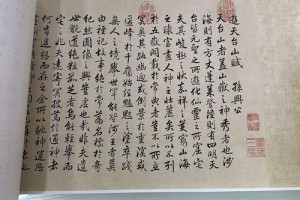 遊天台山賦 孫興公
天台山者蓋山嶽之神秀者也涉
海則有方丈蓬萊登陸則有四明天
台皆玄聖之所遊化仙靈之所窟宅
夫其峻極之狀嘉祥之美窮山海
之瑰富盡人神之壯麗矣所以不列
於五嶽闕載於常典者豈不以所立
冥奧其路幽迥或倒景於重溟或
匿峰於千嶺始經魑魅之塗卒踐
無人之境舉世罕能登陟王者莫
由禋祀故事絕於常篇名標於奇
紀然圖像之興豈虛也哉非夫遺
世翫道絕粒茹芝者烏能輕舉而
宅之非夫遠寄冥搜篤信通神者
何肯遙想而存之余所以馳神運思